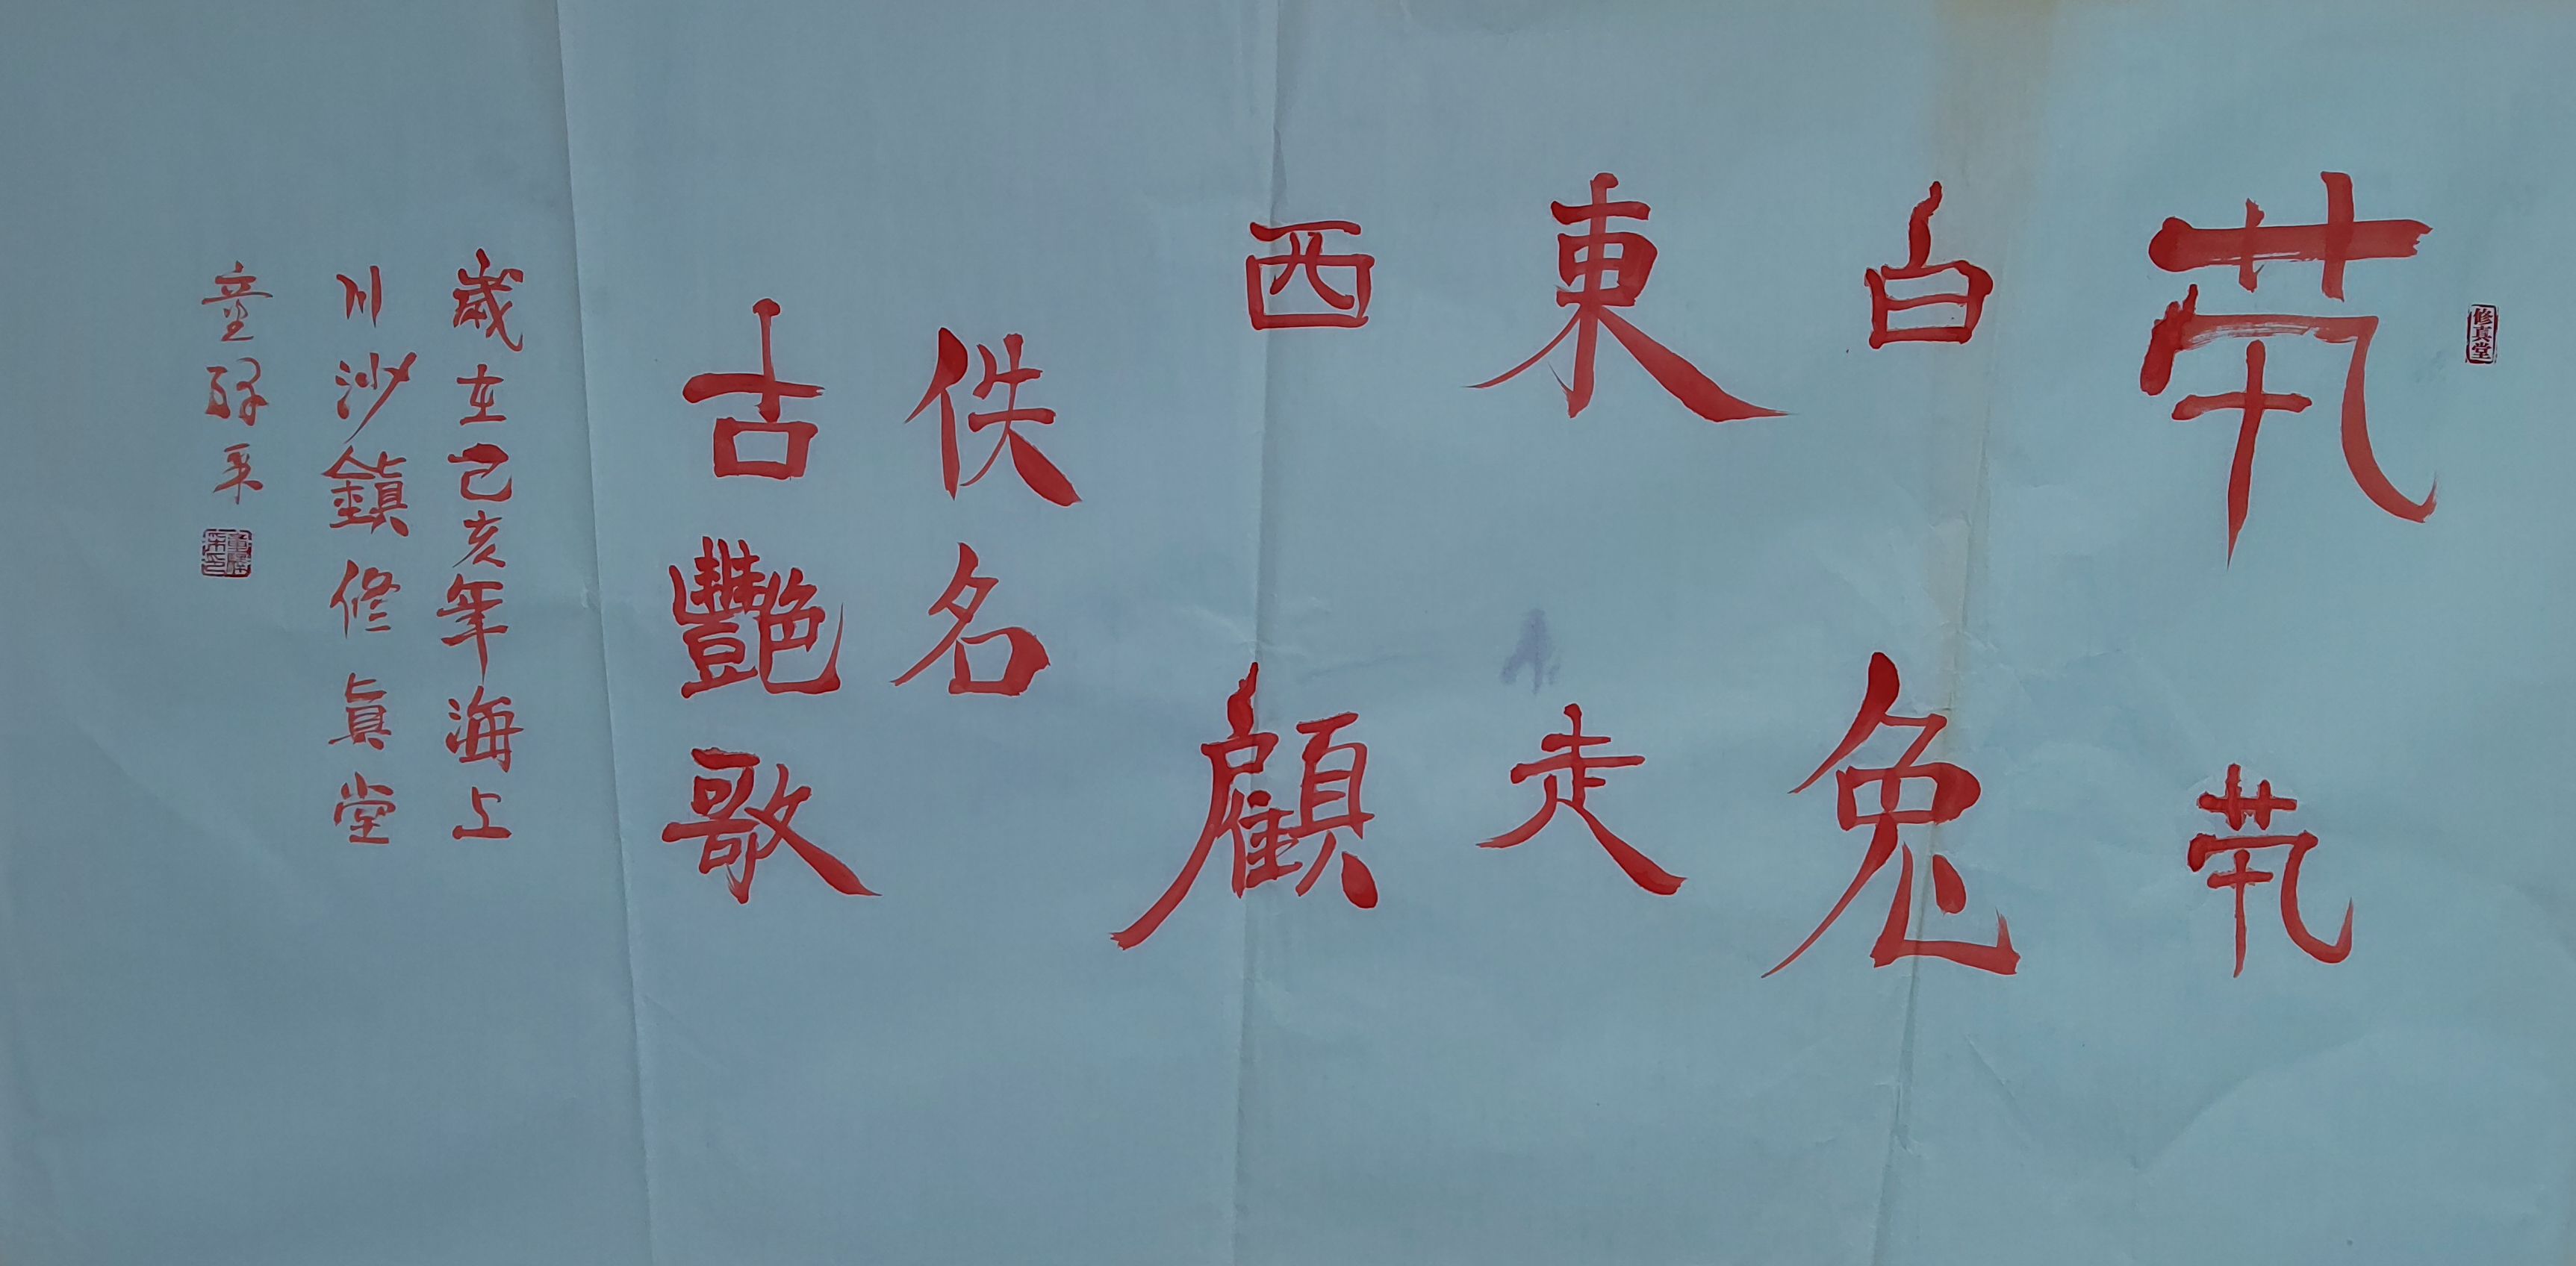 修真堂
茕茕
白兔
東走
西顧
佚名
古艷歌
歲在己亥年海上
川沙鎮修真堂
童